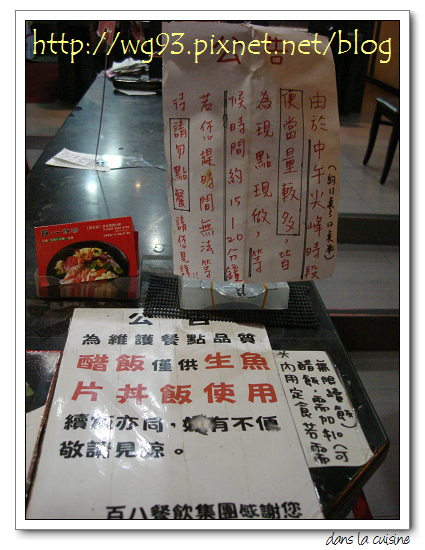 http://wg93.pixnet.net/blog
公告
由於中午尖峰時段
便當量較多，皆
為現點現做，等
候時間約15~20分鐘
若您趕時間無法等
待請勿點餐請您見諒!!
公告
為維護餐點品質
醋飯僅供生魚
片丼飯使用
續飯亦同，如有不便
敬請見諒。
百八餐飲集團感謝您
※內用定食若需
醋飯，需加扣
無限續飯
dans la cuisine